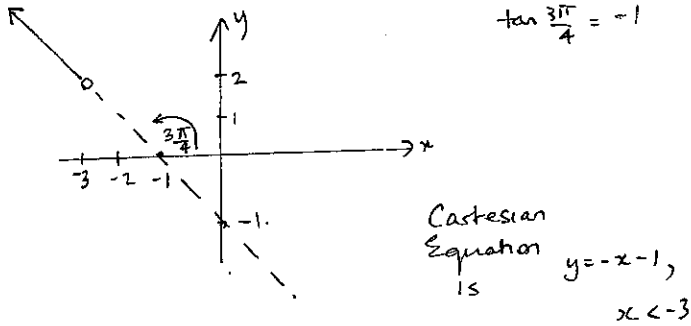 y
tan 3π/4 = -1
2
1
3π/4
x
-3 -2 -1
-1.
Cartesian
Equation
is
y = -x - 1,
x < -3